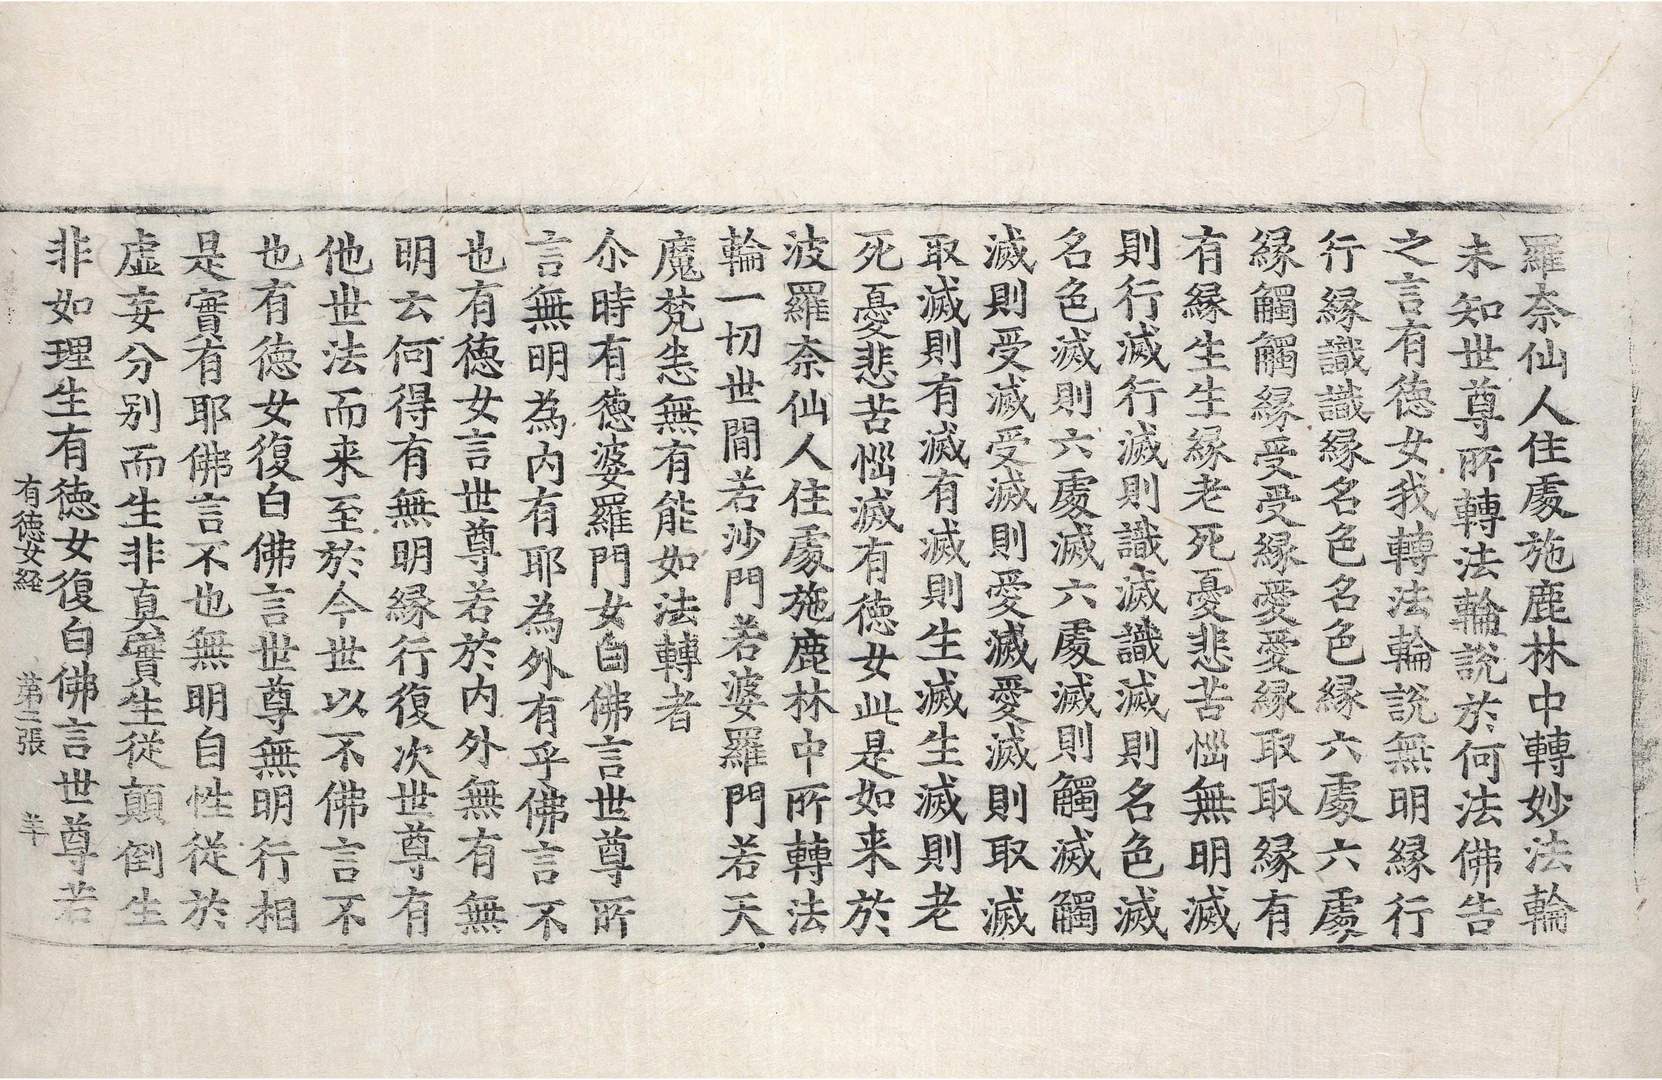 羅奈仙人住處施鹿林中轉妙法輪
未知世尊所轉法輪說於何法佛告
之言有德女我轉法輪說無明緣行
行緣識識緣名色名色緣六處六處
緣觸觸緣受受緣愛愛緣取取緣有
有緣生生緣老死憂悲苦惱無明滅
則行滅行滅則識滅識滅則名色滅
名色滅則六處滅六處滅則觸滅觸
滅則受滅受滅則愛滅愛滅則取滅
取滅則有滅有滅則生滅生滅則老
死憂悲苦惱滅有德女此是如来於
波羅奈仙人住處施鹿林中所轉法
輪一切世間若沙門若婆羅門若天
魔梵悉無有能如法轉者
尒時有德婆羅門女白佛言世尊所
言無明為內有耶為外有乎佛言不
也有德女言世尊若於内外無有無
明云何得有無明緣行復次世尊有
他世法而来至於今世以不佛言不
也有德女復白佛言世尊無明行相
是實有耶佛言不也無明自性従於
虛妄分別而生非真實生従顛倒生
非如理生有德女復白佛言世尊若
有德女経 第二張 羊